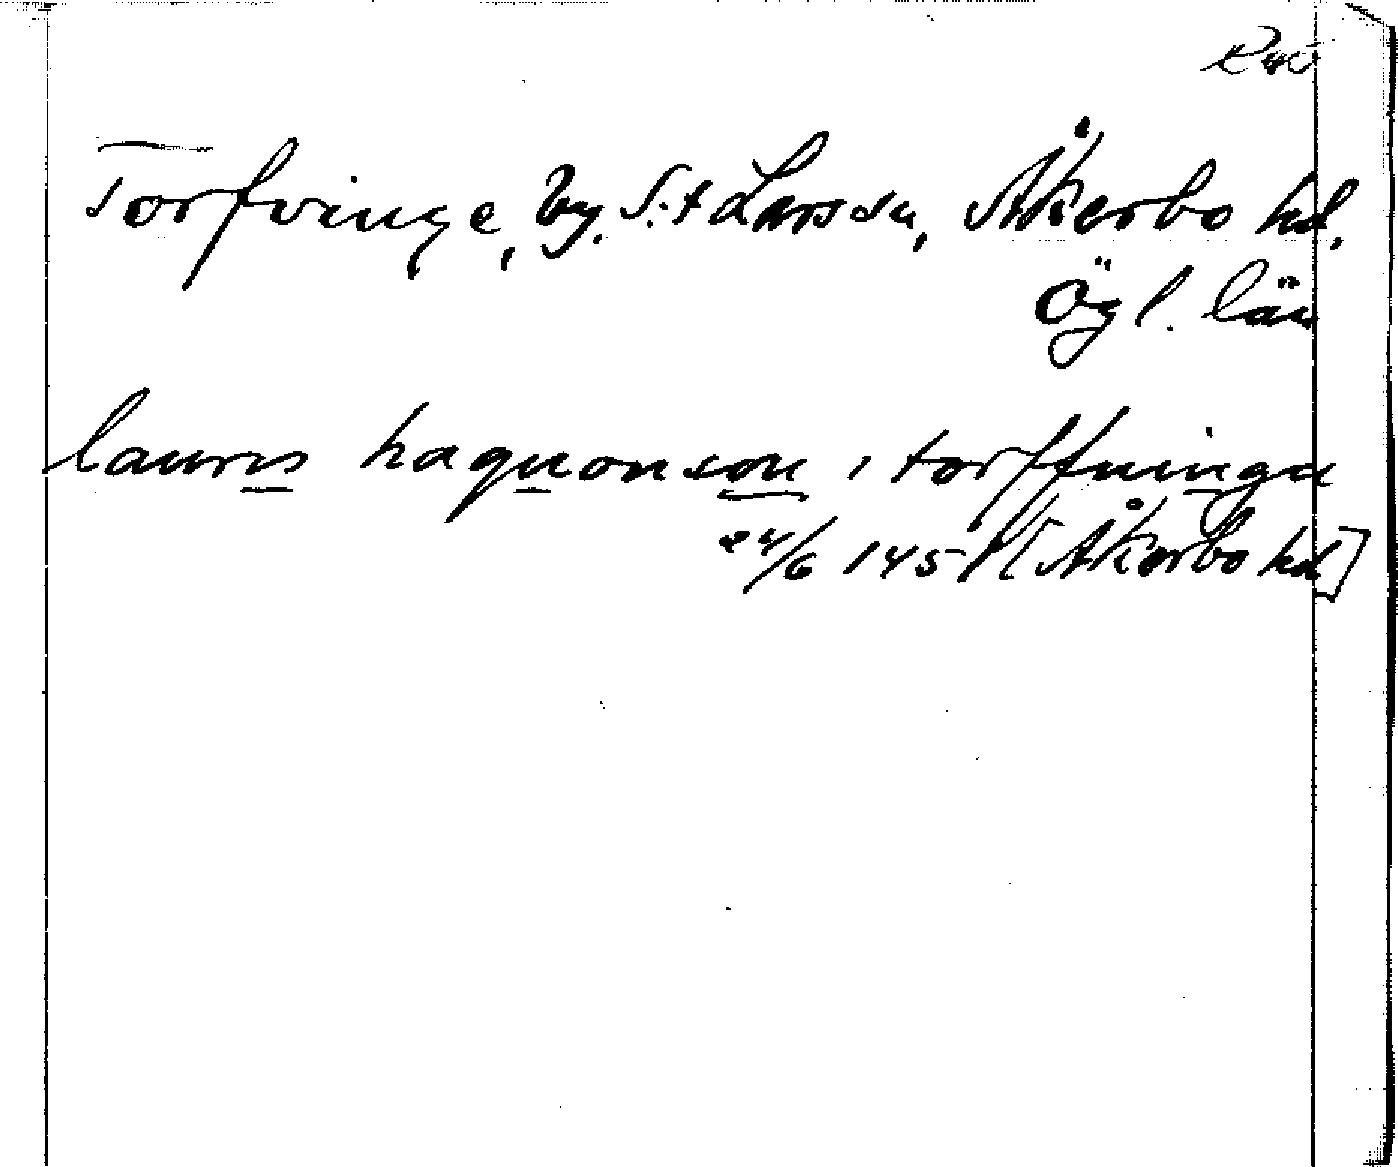 Torfvinge, by. S:t Lars sn, Åkerbo hd.
Ögl. län
lauris haquonson i torffuinga
24/6 1451 [Åkerbo hd]